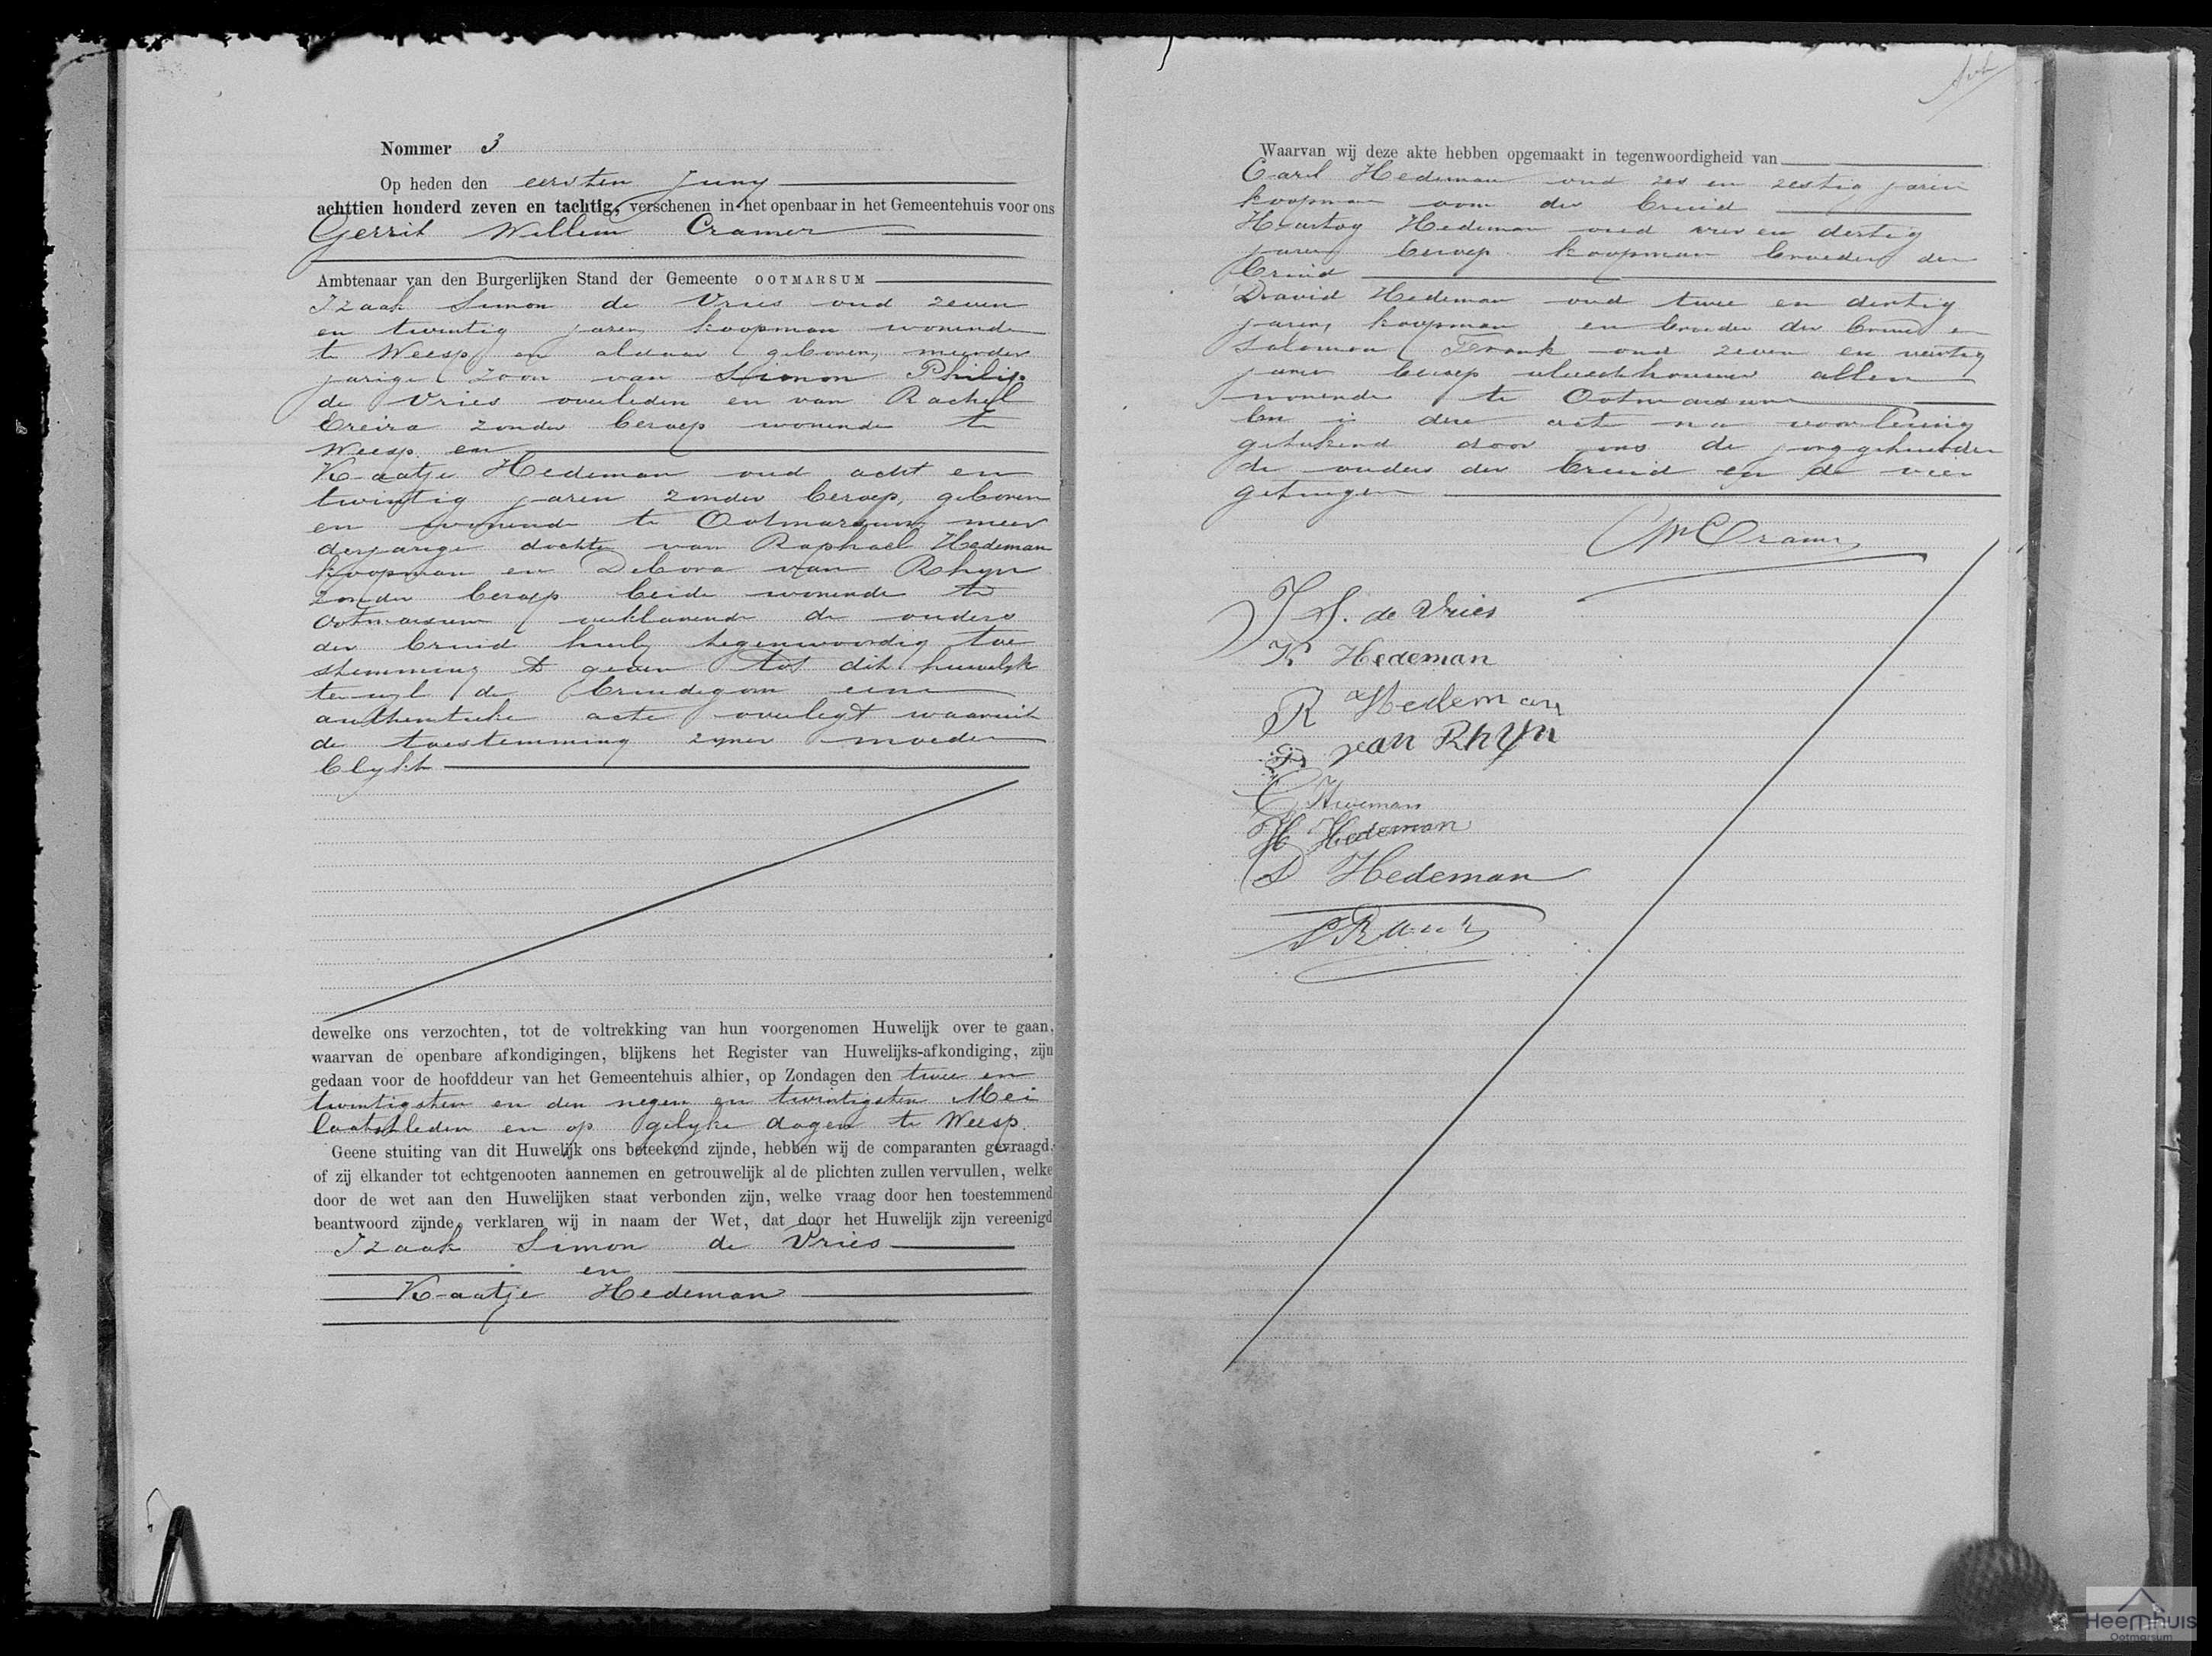 Nommer 3
Op heden den eersten Juny
achttien honderd zeven en tachtig, verschenen in het openbaar in het Gemeentehuis voor ons
Gerrit Willem Cramer
Ambtenaar van den Burgerlijken Stand der Gemeente OOTMARSUM
Izaak Simon de Vries oud zeven
en twintig jaren, koopman wonende
te Weesp en aldaar geboren, meerder
jarige zoon van Simon Philip
de Vries overleden en van Rachel
Creira zonder beroep wonende te
Weesp en
Kaatje Hedeman oud acht en
twintig jaren zonder beroep, geboren
en wonende te Ootmarsum meer
derjarige dochter van Raphael Hedeman
koopman en Debora van Rhyn
zonder beroep beide wonende te
Ootmarsum verklarende de ouders
der bruid hierby tegenwoordig toe
stemming te geven tot dit huwelyk
terwyl de bruidegom eene
authentieke acte overlegt waaruit
de toestemming zyner moeder
blykt
dewelke ons verzochten, tot de voltrekking van hun voorgenomen Huwelijk over te gaan,
waarvan de openbare afkondigingen, blijkens het Register van Huwelijks-afkondiging, zijn
gedaan voor de hoofddeur van het Gemeentehuis alhier, op Zondagen den twee en
twintigsten en den negen en twintigsten Mei
laatstleden en op gelyke dagen te Weesp.
Geene stuiting van dit Huwelijk ons beteekend zijnde, hebben wij de comparanten gevraagd,
of zij elkander tot echtgenooten aannemen en getrouwelijk al de plichten zullen vervullen, welke
door de wet aan den Huwelijken staat verbonden zijn, welke vraag door hen toestemmend
beantwoord zijnde, verklaren wij in naam der Wet, dat door het Huwelijk zijn vereenigd
Izaak Simon de Vries
en
Kaatje Hedeman
Waarvan wij deze akte hebben opgemaakt in tegenwoordigheid van
Carel Hedeman oud zes en zestig jaren
koopman oom der bruid
Hartog Hedeman oud vier en dertig
jaren beroep koopman broeder der
bruid
David Hedeman oud twee en dertig
jaren, koopman en broeder der bruid en
Salomon Frank oud zeven en veertig
jaren beroep vleeschhouwer allen
wonende te Ootmarsum
En is deze acte na voorlezing
geteekend door ons de jonggehuwden
de ouders der bruid en de vier
getuigen
GWCramer
I S. de Vries
K Hedeman
R Hedeman
D van Rhyn
C Hedeman
H Hedeman
D Hedeman
S Frank
Heemhuis
Ootmarsum